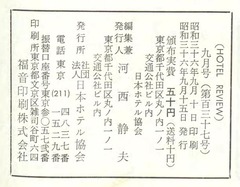 (HOTEL REVIEW)
九月号(第百三十七号)
昭和三十六年九月十日印刷
昭和三十六年九月十日発行
頒布実費 五十円(送料十円)
東京都千代田区丸ノ内一ノ一
交通公社ビル内
日本ホテル協会
編集兼発行人 河西静夫
東京都千代田区丸ノ内一ノ一
交通公社ビル内
発行所 社団法人 日本ホテル協会
電話東京(211)四八三七番
一五二九番
振替口座番号東京参〇五七三番
印刷所 東京都文京区雑司ヶ谷町六四
福音印刷株式会社